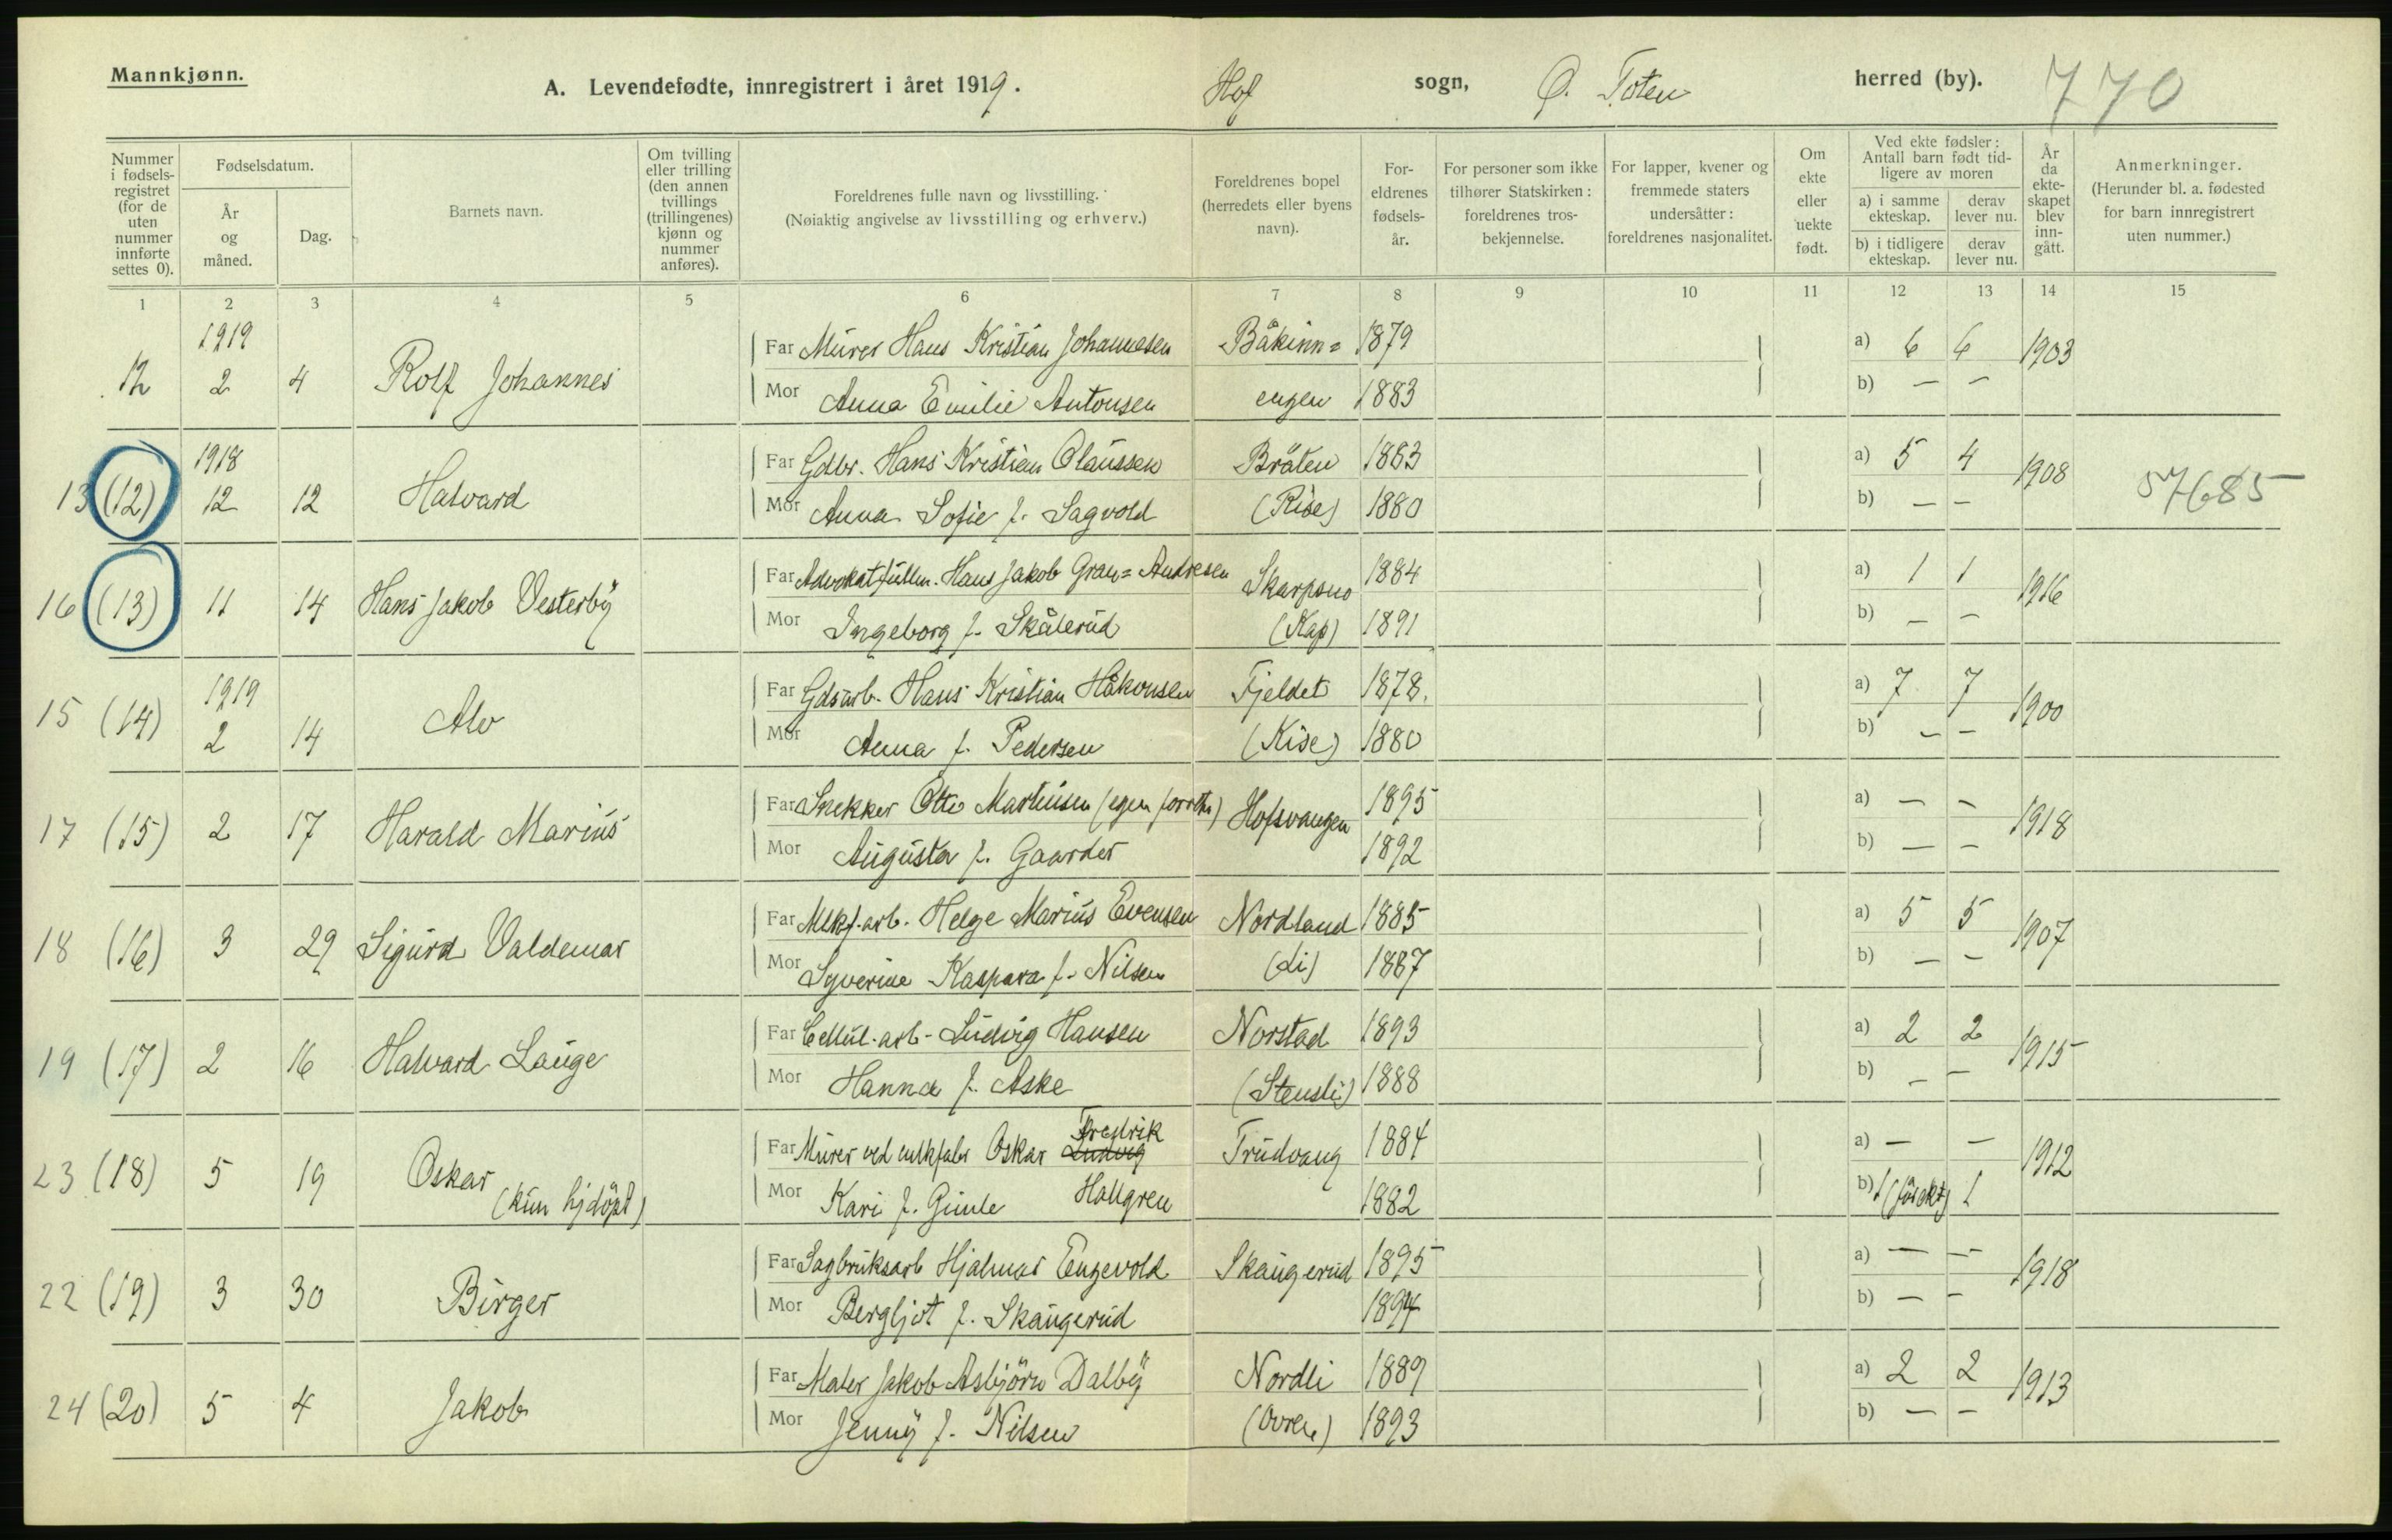 Mannkjønn.
A. Levendefødte, innregistrert i året 1919. Hof sogn, Ø. Toten herred (by). 770
Nummer i fødsels-registret (for de uten nummer innførte settes 0).
Fødselsdatum.
År og måned.
Dag.
Barnets navn.
Om tvilling eller trilling (den annen tvillings (trillingenes) kjønn og nummer anføres).
Foreldrenes fulle navn og livsstilling.
(Nøiaktig angivelse av livsstilling og erhverv.)
Foreldrenes bopel (herredets eller byens navn).
For-eldrenes fødsels-år.
For personer som ikke tilhører Statskirken: foreldrenes tros-bekjennelse.
For lapper, kvener og fremmede staters undersåtter: foreldrenes nasjonalitet.
Om ekte eller uekte født.
Ved ekte fødsler: Antall barn født tid-ligere av moren
a) i samme ekteskap. derav lever nu.
b) i tidligere ekteskap. derav lever nu.
År da ekte-skapet blev inn-gått.
Anmerkninger.
(Herunder bl. a. fødested for barn innregistrert uten nummer.)
1 2 3 4 5 6 7 8 9 10 11 12 13 14 15
1919
12 2 4 Rolf Johannes
Far Murer Hans Kristian Johannesen Båkinn= 1879 a) 6 6 1903
Mor Anna Emilie Antonsen engen 1883 b) — —
1918
13 (12) 12 12 Halvard
Far Gdbr. Hans Kristian Olaussen Bråten 1883 a) 5 4 1908 57685
Mor Anna Sofie f. Sagvold (Kise) 1880 b) — —
16 (13) 11 14 Hans Jakob Vesterby
Far Advokatfullm. Hans Jakob Gran= Andresen Skarpsno 1884 a) 1 1 1916
Mor Ingeborg f. Skålerud (Kap) 1891 b) — —
1919
15 (14) 2 14 Alv
Far Gdsarb. Hans Kristian Håkonsen Fjeldet 1878. a) 7 7 1900
Mor Anna f. Pedersen (Kise) 1880 b) — —
17 (15) 2 17 Harald Marius
Far Snekker Otto Martinsen (egen forretn) Hofsvangen 1895 a) — — 1918
Mor Augusta f. Gaarder 1892 b) — —
18 (16) 3 29 Sigurd Valdemar
Far Mlkf. arb. Helge Marius Evensen Nordland 1885 a) 5 5 1907
Mor Syverine Kaspara f. Nilsen (Li) 1887 b) — —
19 (17) 2 16 Halvard Lauge
Far Cellul. arb. Ludvig Hansen Norstad 1893 a) 2 2 1915
Mor Hanna f. Aske (Stensli) 1888 b) — —
Fredrik
23 (18) 5 19 Oskar
(kun hjdöpt)
Far Murer ved mlkfabr Oskar Ludvig Trudvang 1884 a) — — 1912
Mor Kari f. Gimle Hallgren 1882 b) 1 (för ekt) 1
22 (19) 3 30 Birger
Far Sagbruksarb Hjalmar Engevold Skaugerud 1895 a) — — 1918
Mor Bergljot f. Skaugerud 1894 b) — —
24 (20) 5 4 Jakob
Far Maler Jakob Asbjörn Dalby Nordli 1889 a) 2 2 1913
Mor Jenny f. Nilsen 1893 b) — —